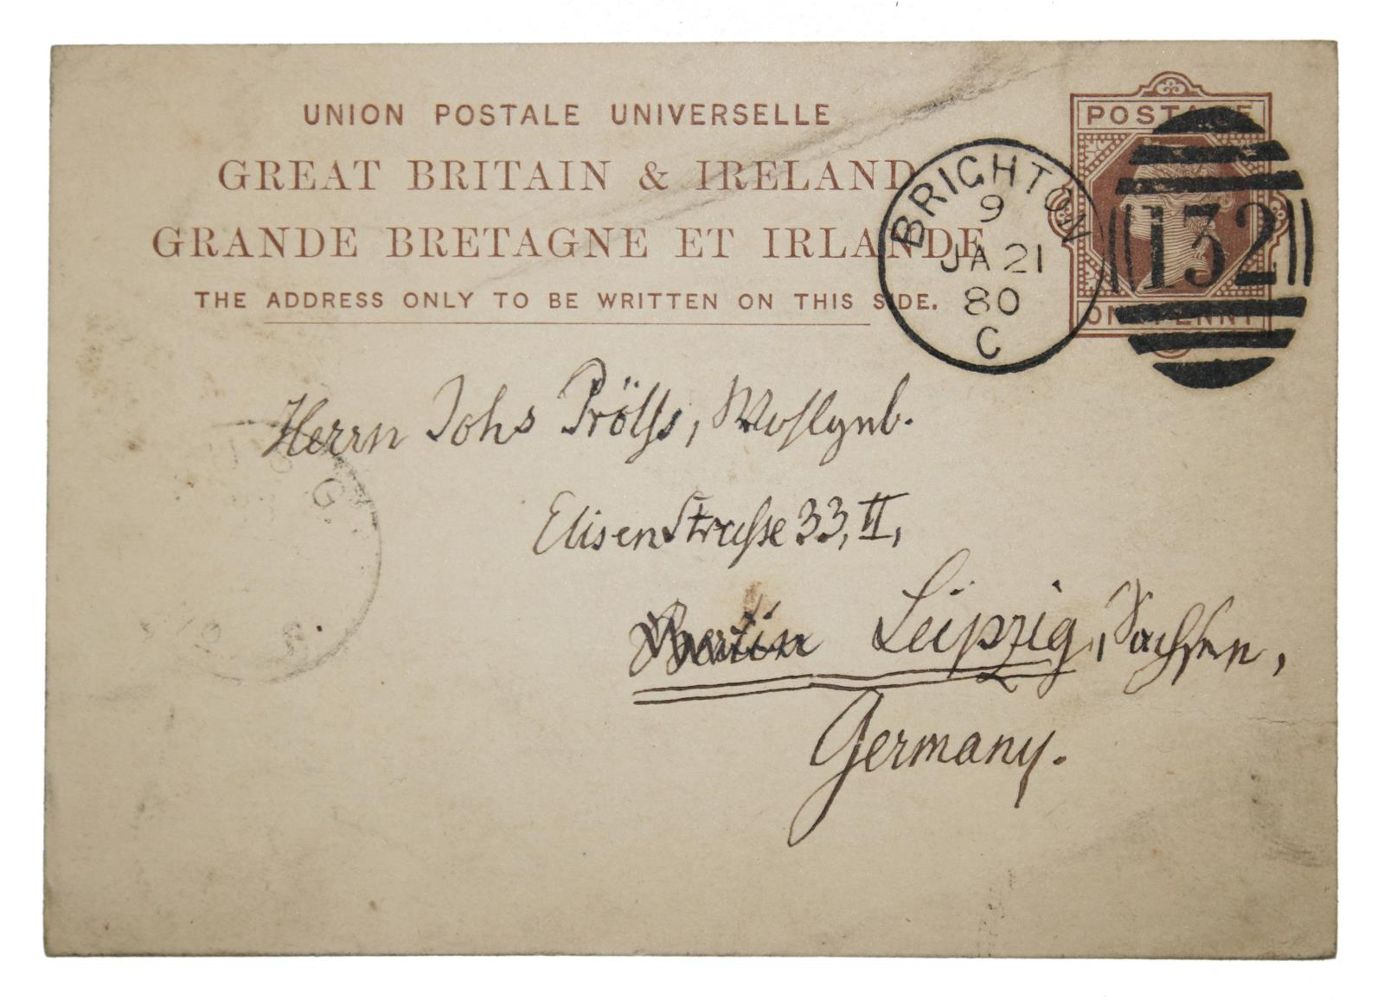 UNION POSTALE UNIVERSELLE
GREAT BRITAIN & IRELAND
GRANDE BRETAGNE ET IRLANDE
THE ADDRESS ONLY TO BE WRITTEN ON THIS SIDE.
POSTAGE
ONE PENNY
BRIGHTON
9
JA 21
80
C
132
Herrn Johs Prölss, Wohlgeb.
Elisenstrasse 33, II,
Berlin Leipzig, Sachsen,
Germany.